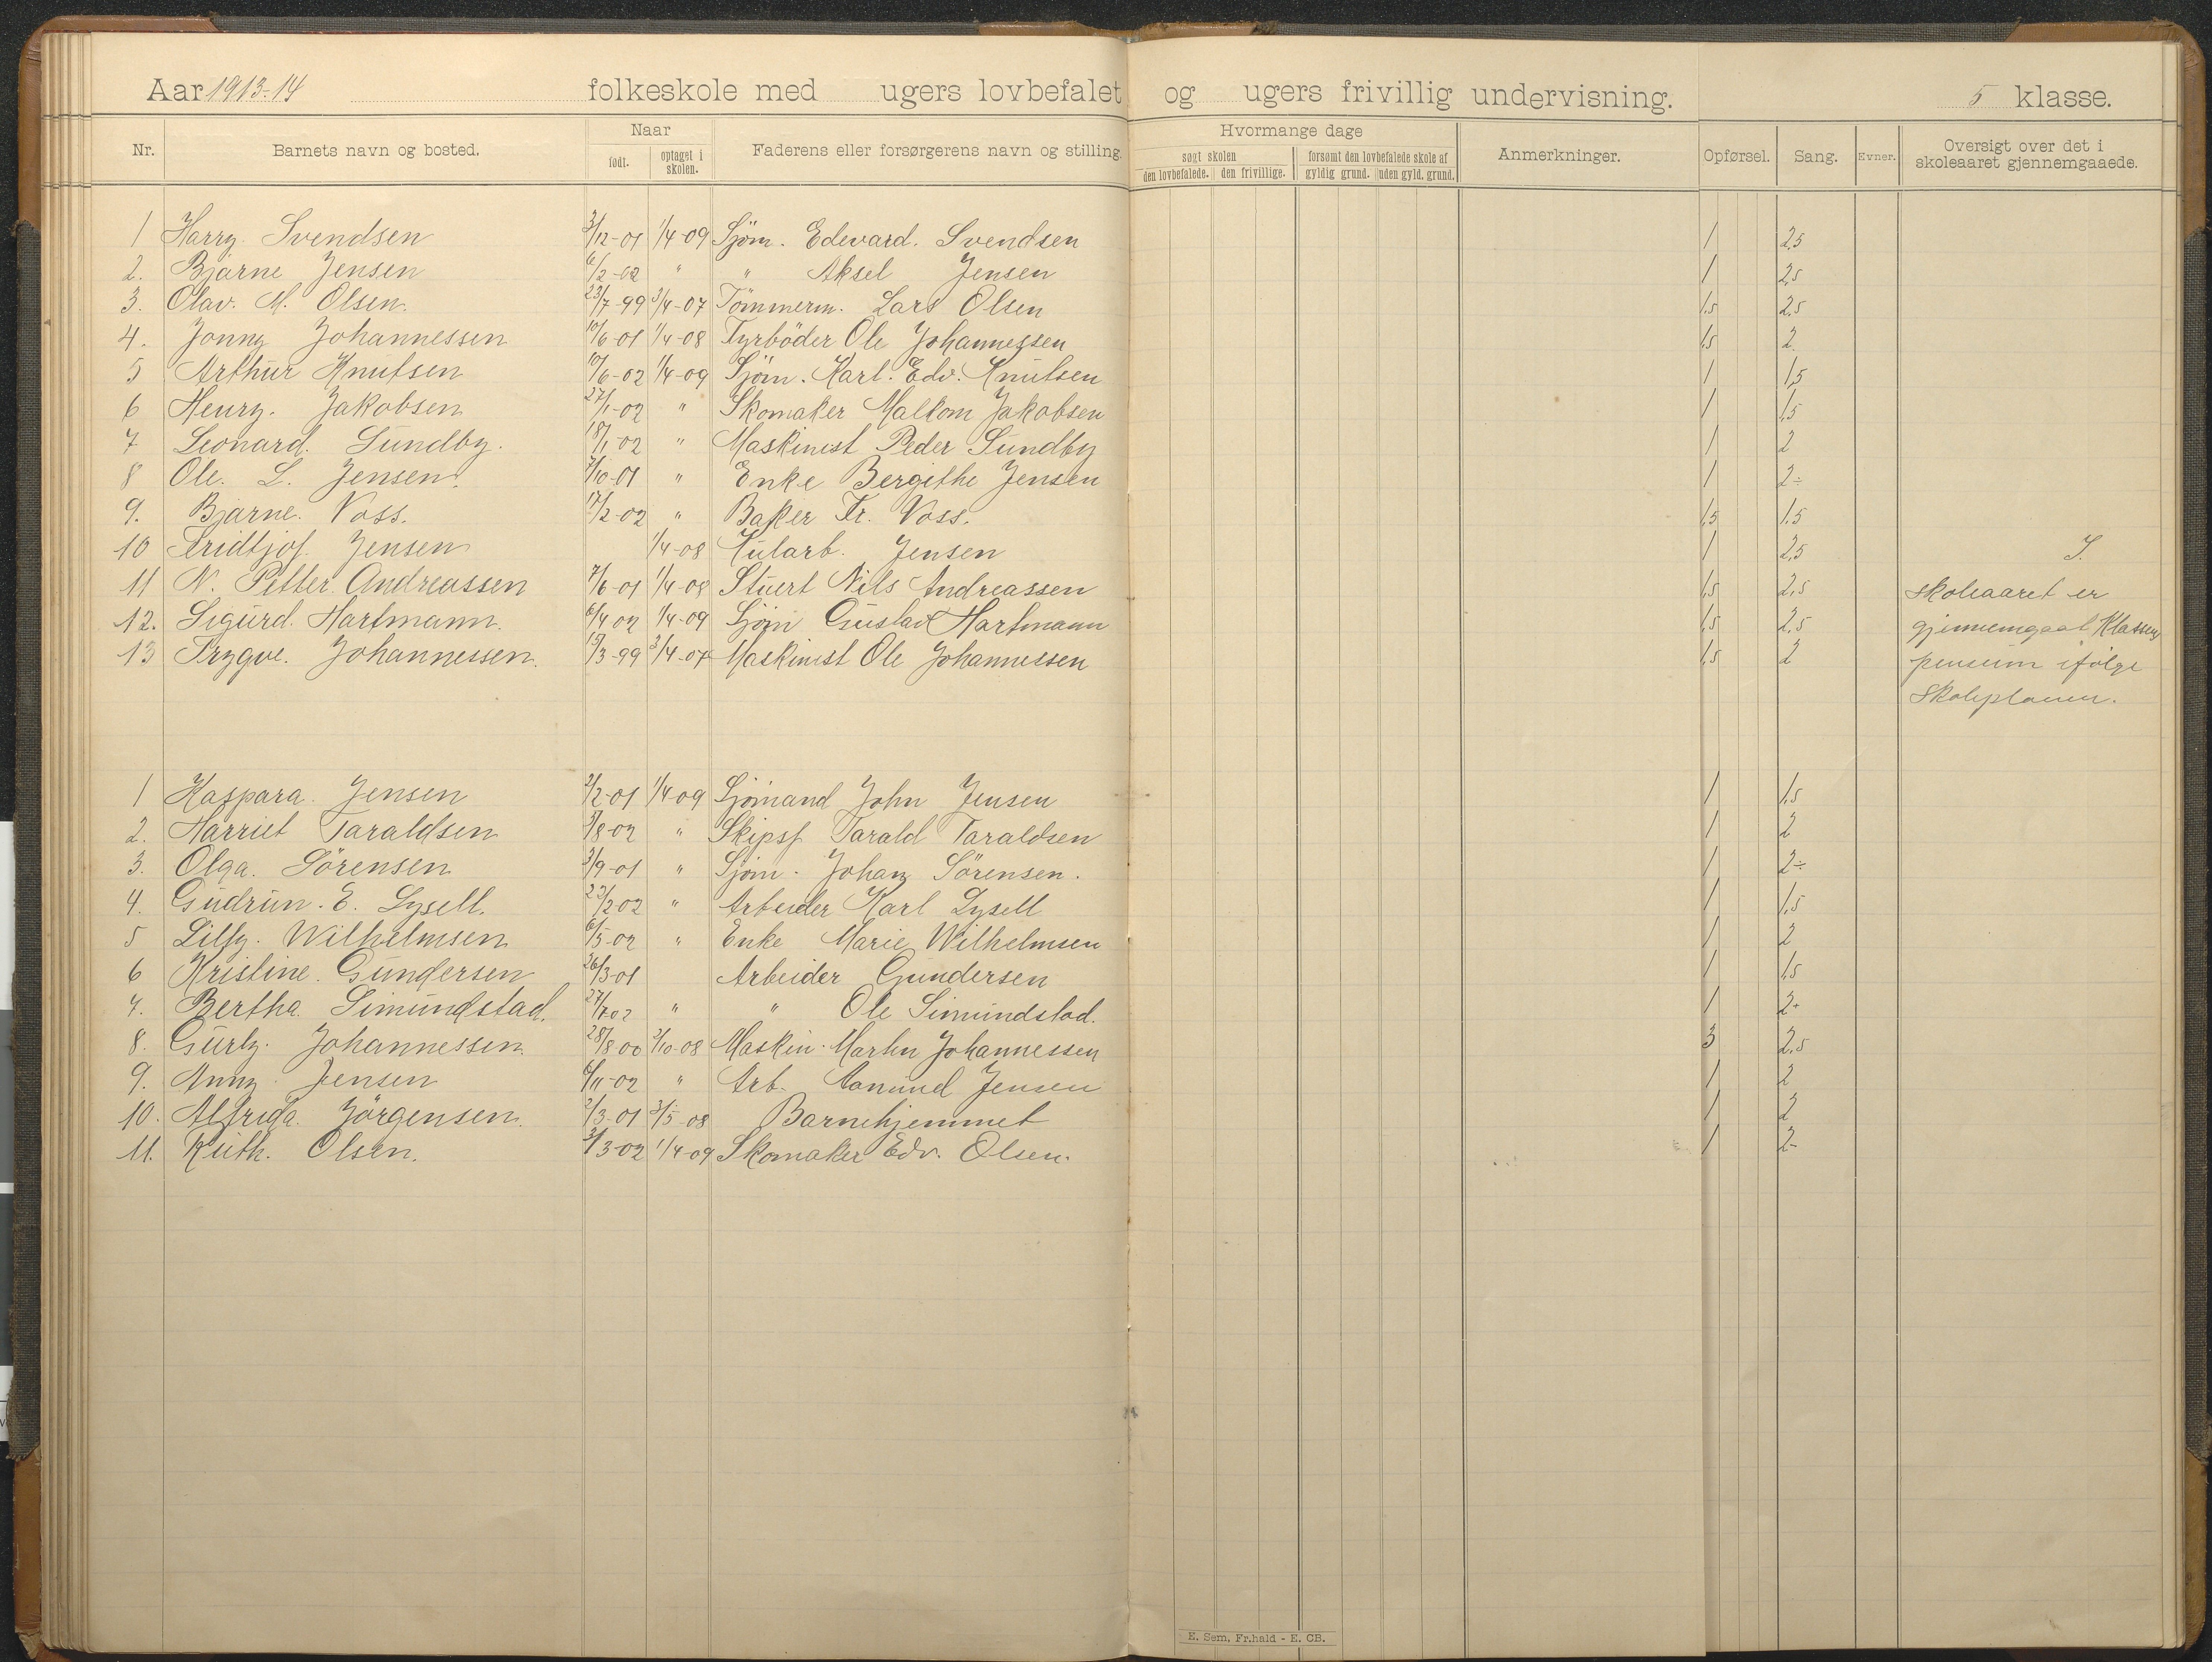 Aar 1913-14 folkeskole med ugers lovbefalet og ugers frivillig undervisning. 5 klasse.
Nr. Barnets navn og bosted. Naar født. optaget i skolen. Faderens eller forsørgerens navn og stilling. Hvormange dage søgt skolen den lovbefalede. den frivillige. forsømt den lovbefalede skole af gyldig grund. uden gyld. grund. Anmerkninger. Opførsel. Sang. Evner. Oversigt over det i skoleaaret gjennemgaaede.
1 Harry. Svendsen 3/12-01 1/4-09 Sjöm. Edevard. Svendsen 1 2,5
2. Bjarne Jensen 6/2-02 " " Aksel Jensen 1 2,5
3. Olav. M. Olsen. 23/7-99 3/4-07 Tömmerm. Lars Olsen 1,5 2,5
4. Jonny Johannessen 10/6-01 1/4-08 Fyrböder Ole Johannessen 1,5 2
5 Arthur Knutsen 10/6-02 1/4-09 Sjöm. Karl. Edv. Knutsen 1 1,5
6 Henry. Jakobsen 27/1-02 " Skomaker Malkom Jakobsen 1 1,5
7 Leonard. Sundby. 18/1-02 " Maskinist Peder Sundby 1 2
8 Ole. L. Jensen. 7/10-01 " Enke Bergithe Jensen 1 2÷
9. Bjarne. Voss. 17/2-02 " Baker Fr. Voss. 1,5 1.5
10 Fridtjof. Jensen 1/4-08 Kularb. Jensen 1 2,5 I.
11 N. Petter Andreassen 7/6-01 1/4-08 Stuert Nils Andreassen 1,5 2,5 skoleaaret er
12. Sigurd. Hartmann. 6/4 02 1/4-09 Sjöm Gustav Hartmann 1,5 2,5 gjennemgaat Klassens
13 Trygve. Johannessen. 15/3-99 3/4-07 Maskinist Ole Johannessen 1,5 2 pensum ifølge
skoleplanen.
1 Kaspara. Jensen 2/2-01 1/4-09 Sjömand John Jensen 1 1,5
2. Harriet Taraldsen 9/8-02 " Skipsf Tarald Taraldsen 1 2
3. Olga. Sörensen 3/9-01 " Sjöm. Johan Sörensen. 1 2÷
4. Gudrun. E. Lysell. 23/2 02 " Arbeider Karl Lysell 1 1,5
5 Lilly. Wilhelmsen 6/5-02 " Enke Marie Wilhelmsen 1 2
6 Kristine. Gundersen 26/3-01 Arbeider Gundersen 1 1,5
7. Bertha. Simundstad. 27/7-02 " " Ole Simundstad. 1 2-
8. Gurly. Johannessen. 28/8-00 3/10-08 Maskin. Martin Johannessen 3 2,5
9. Anny. Jensen 6/11-02 " Arb. Aanund Jensen 1 2
10. Alfrida. Jörgensen. 2/3-01 3/5-08 Barnehjemmet 1 2
11. Ruth. Olsen. 3/3-02 1/4-09 Skomaker Edv. Olsen. 1 2-
E. Sem, Fr.hald - E. CB.